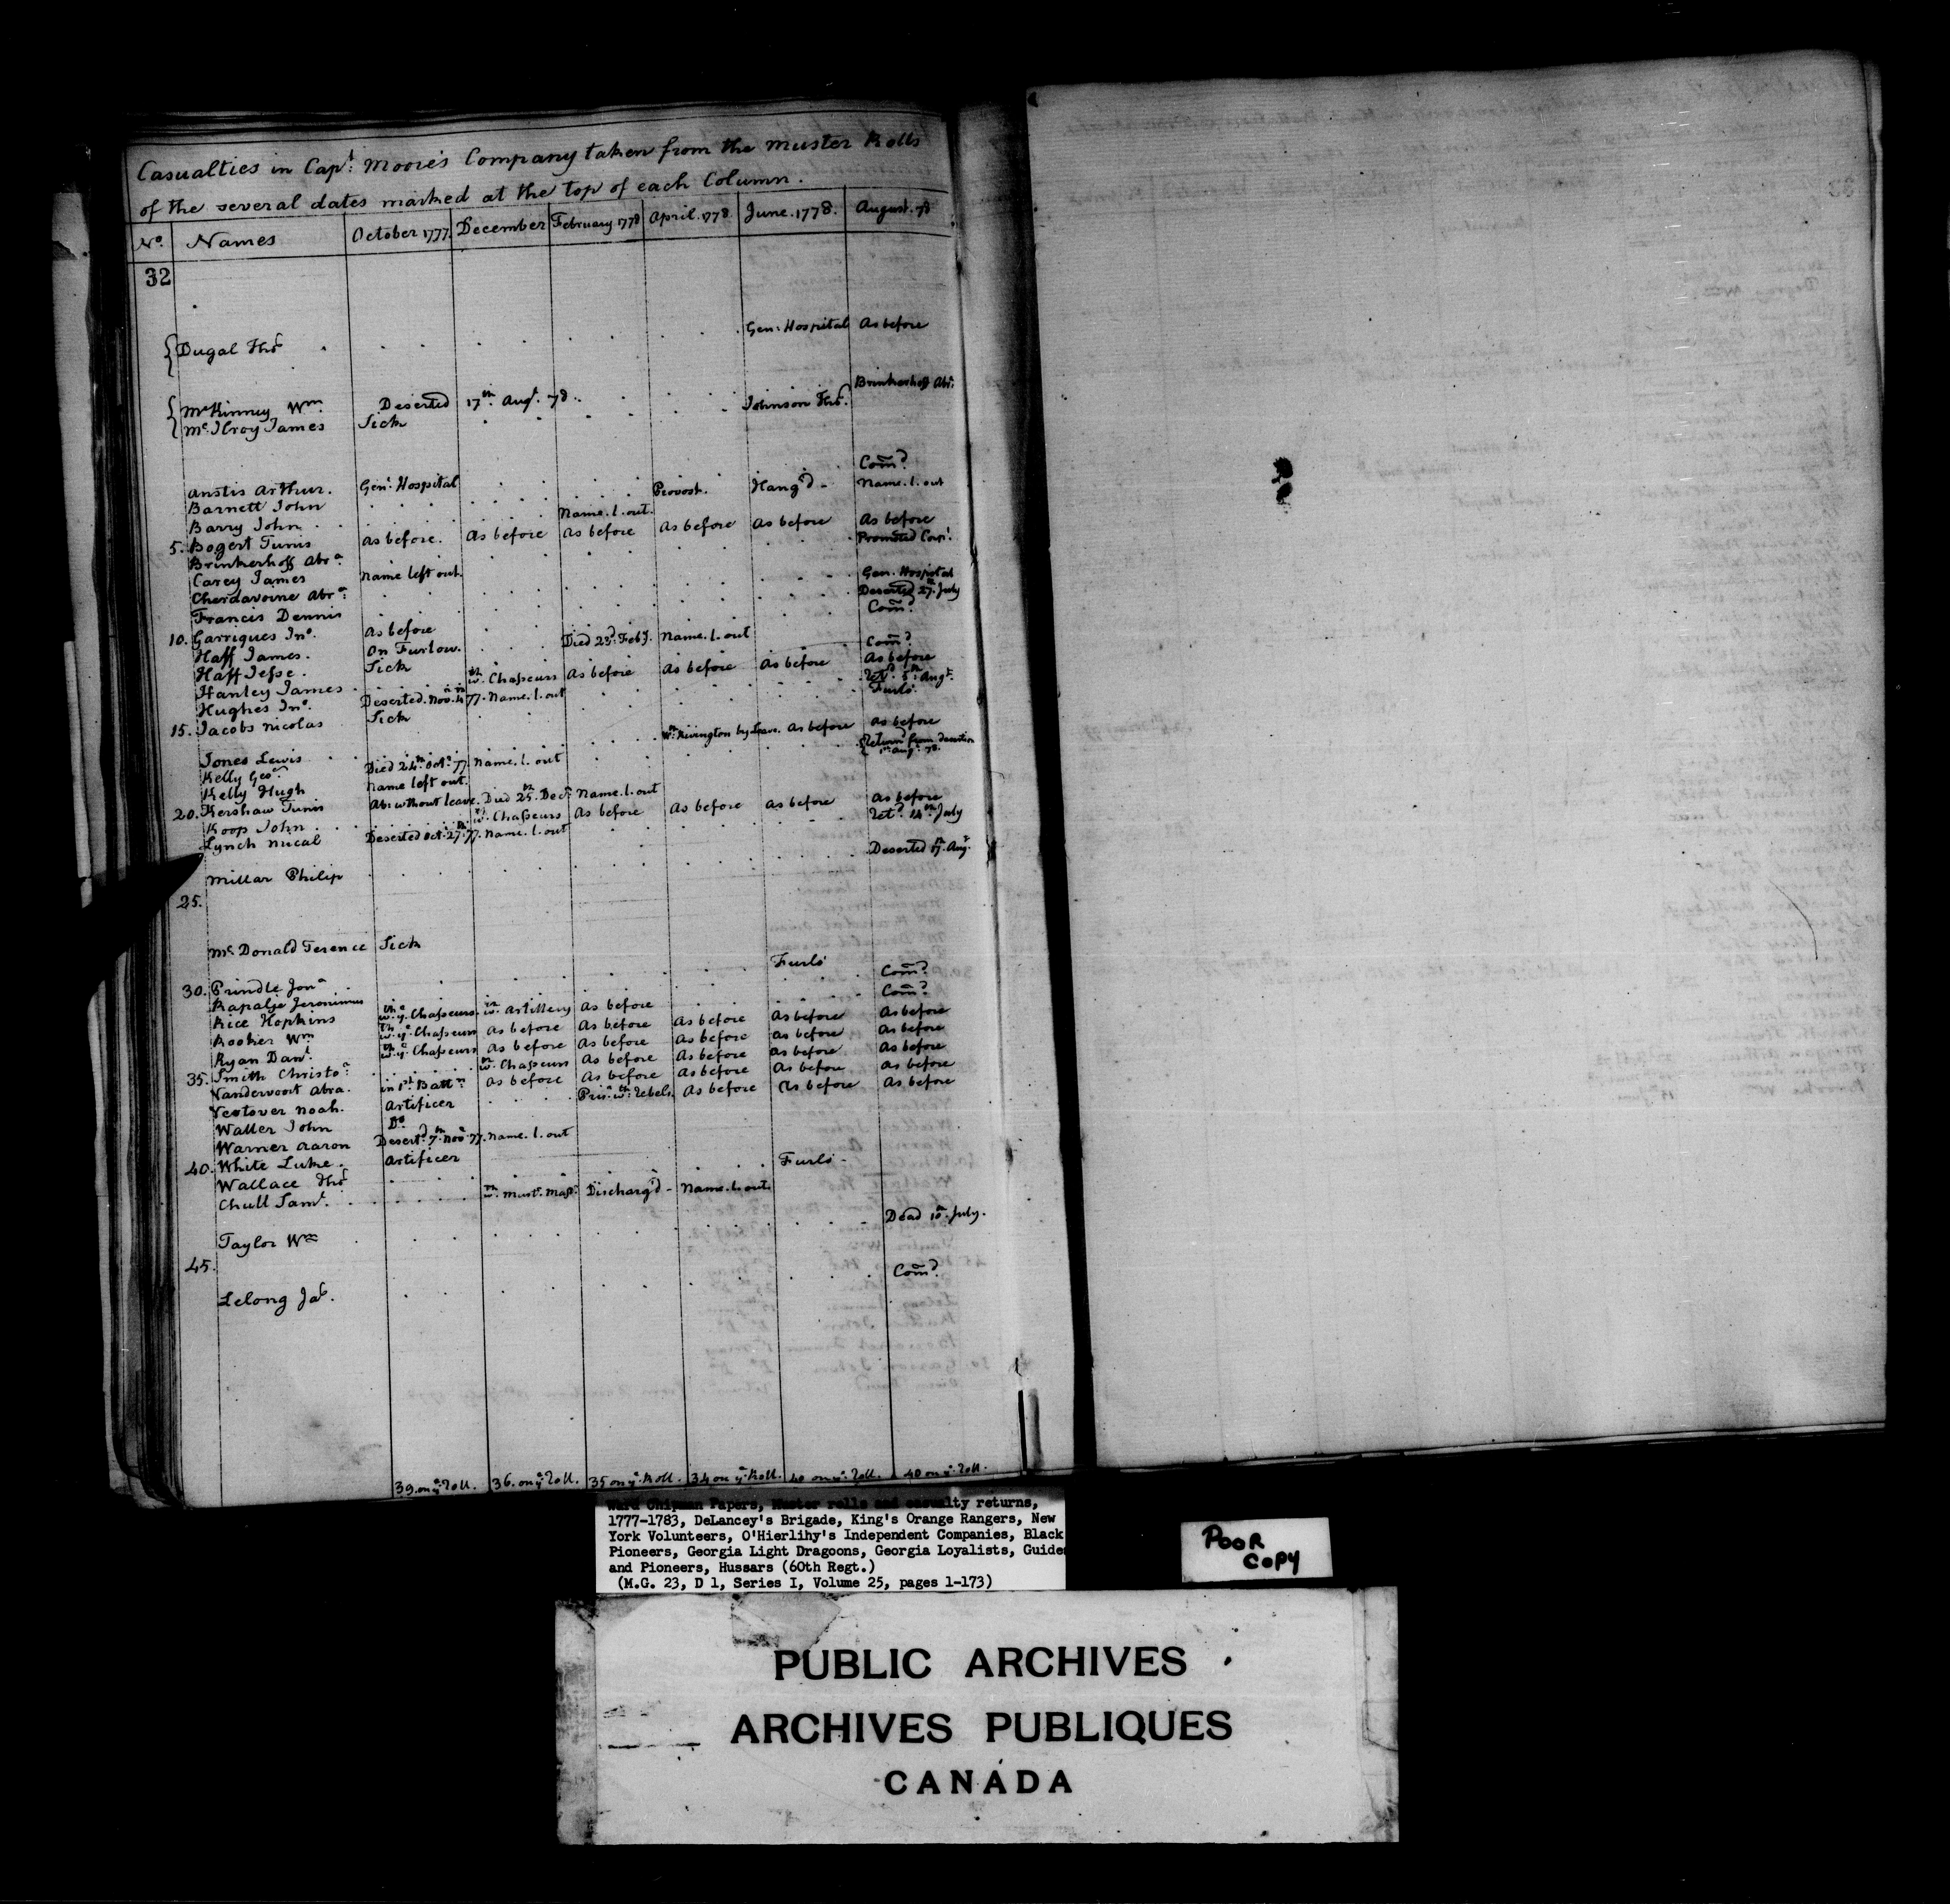 Casualties in Capt. Moore's Company taken from the Muster Rolls
of the several dates marked at the top of each Column.
No. Names October 1777. December February 1778 April. 1778 June. 1778. August. 78
32
Dugal Thos. Gen: Hospital As before
Brinkerhoff Abm.
McKinney Wm. Deserted 17th. Augt. 78. Johnson Thos.
McIlroy James Sick
Anstis Arthur. Genl. Hospital Comd.
Barnett John Provost. Hang'd - Name. l. out
Barry John Name. l. out.
5. Bogert Tunis as before. as before as before as before as before as before
Brinkerhoff Abrm. Promoted Corpl.
Carey James Name left out.
Cherdavoine Abrm. Gen. Hospital
Francis Dennis Deserted 27th. July
10. Garrigues Jno. As before Comd.
Haff James. On Furlow. Died 23d. Feby. Name. l. out
Haff Jesse. Sick Comd.
Hanley James wth. Chasseurs As before As before As before As before
Hughes Jno. Deserted. Nov. 4th 77. Name. l. out Retd. 5th. Augt.
15. Jacobs Nicolas Sick Furlo.
Jones Lewis Wth. Rivington by Leave. As before As before
Kelly Geo. Died 24th. Octr. 77. Name. l. out Return'd from Desertion 1st. Augt. 78.
Kelly Hugh Name left out.
20. Kershaw Tunis Abs. without leave. Died 25th. Decr. Name. l. out
Koop John wth. Chasseurs As before As before as before As before
Lynch Mical Deserted Oct. 27th. 77. Name. l. out Retd. 14th. July
Millar Philip Deserted 17th. Augt.
25.
McDonald Terence Sick
30. Prindle Jona. Furlo' Comd.
Rapalje Jeronimus Comd.
Rice Hopkins wth. ye. Chasseurs. in Artillery As before
Rooker Wm wth. ye. Chasseurs As before As before As before As before As before
Ryan Danl. wth. ye. Chasseurs As before As before As before as before As before
35. Smith Christor. wth. Chasseurs As before As before as before As before
Vandervoort Abra. in 1st. Battn. as before As before As before As before As before
Vestover Noah. Artificer Prisr. wth. Rebels. As before As before As before
Waller John Do.
Warner Aaron Desertd. 7th. Novr. 77. Name. l. out
40. White Luke. Artificer
Wallace Thos. Furlo -
Chull Saml. wth. Mustr. Mastr. Discharg'd - Name. l. out.
Taylor Wm Dead 10th. July.
45.
Lelong Jas. Comd.
39. on ye. Roll. 36. on ye. Roll. 35 on ye. Roll. 34 on ye. Roll. 40 on ye. Roll. 40 on ye. Roll.
Ward Chipman Papers, Muster rolls and casualty returns,
1777-1783, DeLancey's Brigade, King's Orange Rangers, New
York Volunteers, O'Hierlihy's Independent Companies, Black
Pioneers, Georgia Light Dragoons, Georgia Loyalists, Guides
and Pioneers, Hussars (60th Regt.)
(M.G. 23, D 1, Series I, Volume 25, pages 1-173)
POOR
COPY
PUBLIC ARCHIVES
ARCHIVES PUBLIQUES
CANADA